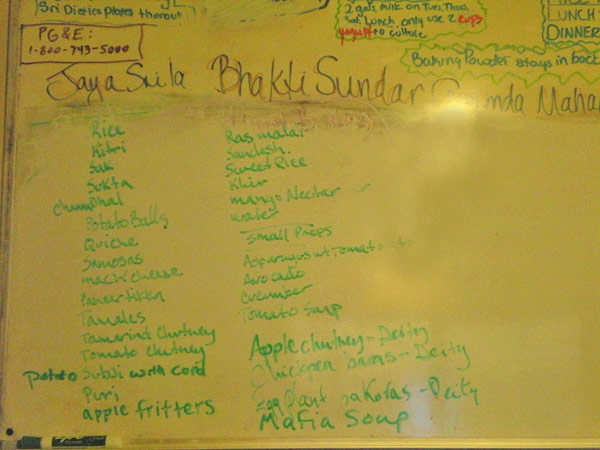 Sri Dieties plates
PG&E:
1-800-743-5000
2 gals milk on Tues, Thur
Sat. Lunch only use 2 cups
yogurt to culture
LUNCH
DINNER
Baking Powder stays in back
Jaya Srila Bhakti Sundar Govinda Mahar
Rice
Kitri
Sak
Sukta
Dhal
Potato Balls
Quiche
Samosas
mac n cheese
Paneer tikka
Tamales
Tamarind Chutney
Tomato Chutney
potato Subji with cord
Puri
apple fritters
Ras malai
Sandesh
Sweet Rice
Khir
mango Nectar
water
Small Preps
Asparagus w/ Tomato
Avocado
Cucumber
Tomato Soup
Apple chutney - Deity
Chickpea - Deity
Egg Plant pakoras - Deity
Mafia Soup